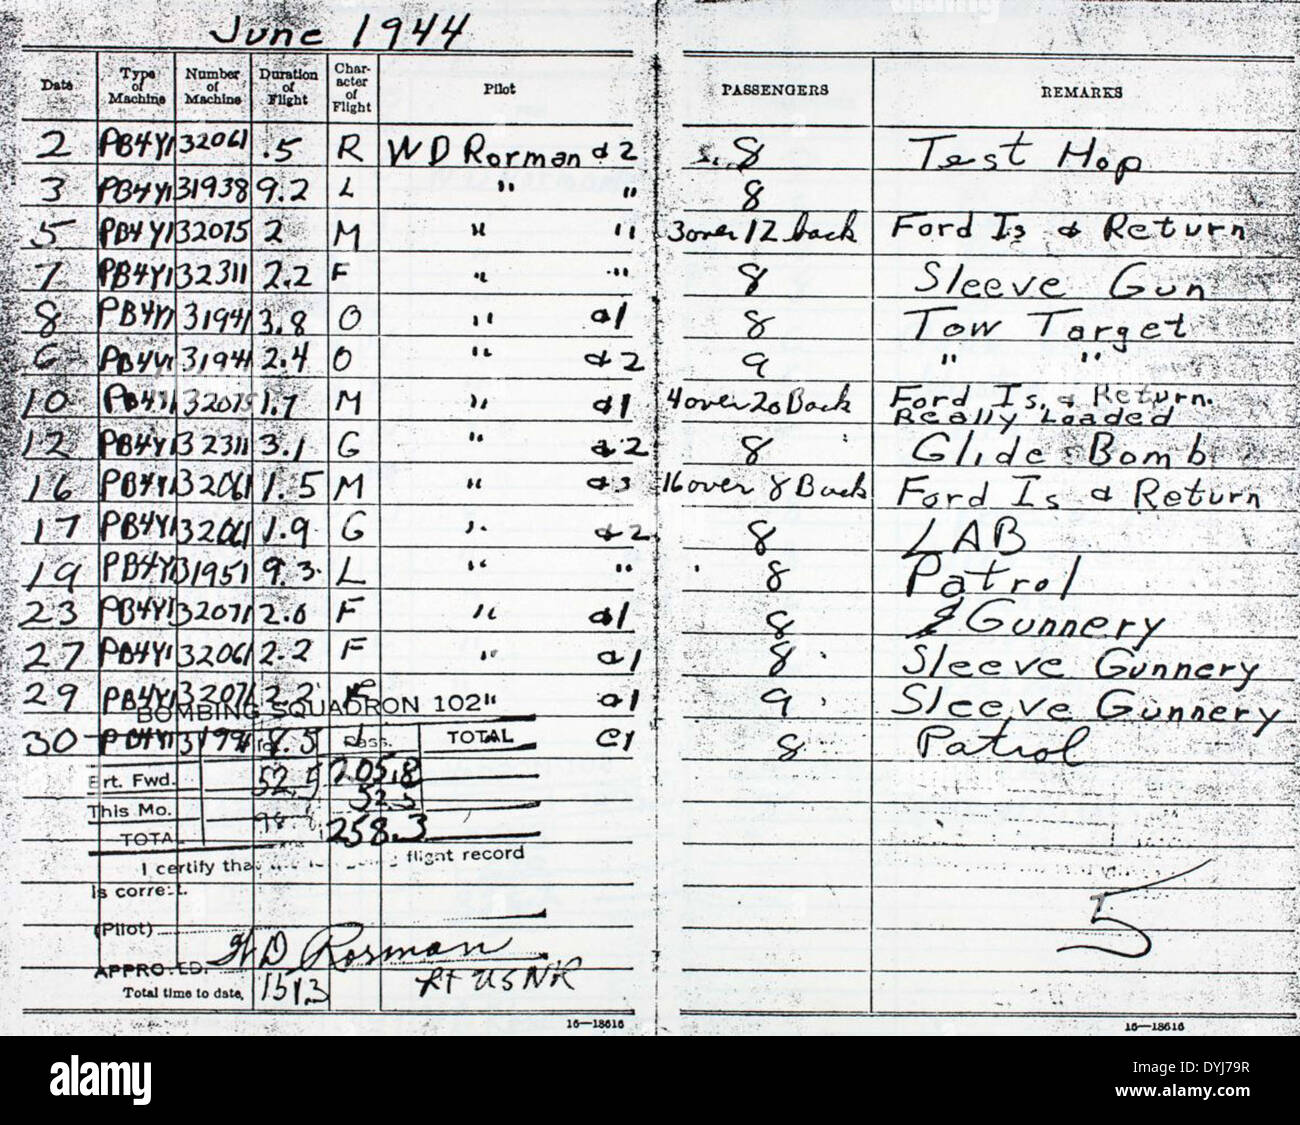 June 1944
Date Type of Machine Number of Machine Duration of Flight Char-acter of Flight Pilot PASSENGERS REMARKS
2 PB4Y1 32061 .5 R W D Rorman d2 8 Test Hop
3 PB4Y1 31938 9.2 L " " 8
5 PB4Y1 32075 2 M " " 3 over 12 back Ford Is & Return
7 PB4Y1 32311 2.2 F " " 8 Sleeve Gun
8 PB4Y1 31941 3.8 O " d1 8 Tow Target
6 PB4Y1 31941 2.4 O " d2 9 " "
10 PB4Y1 32075 1.7 M " d1 4 over 20 Back Ford Is. & Return.
Really Loaded
12 PB4Y1 32311 3.1 G " d2 8 Glide Bomb
16 PB4Y1 32061 1.5 M " d3 16 over 8 Back Ford Is & Return
17 PB4Y1 32061 1.9 G " d2 8 LAB
19 PB4Y1 31951 9.3 L " " 8 Patrol
23 PB4Y1 32071 2.0 F " d1 8 Gunnery
27 PB4Y1 32061 2.2 F " d1 8 Sleeve Gunnery
29 PB4Y1 32071 2.2 " d1 9 Sleeve Gunnery
BOMBING SQUADRON 102
30 PB4Y1 8.5 L Pass. TOTAL 8 Patrol
Brt. Fwd. 52.5 205.8
This Mo. 98.8 52.5
TOTAL 258.3
I certify that flight record
is correct.
5
(Pilot)
W D Rorman
APPROVED: Lt USNR
Total time to date, 151.3
16—18616 16—18616
alamy
alamy
Image ID: DYJ79R
www.alamy.com